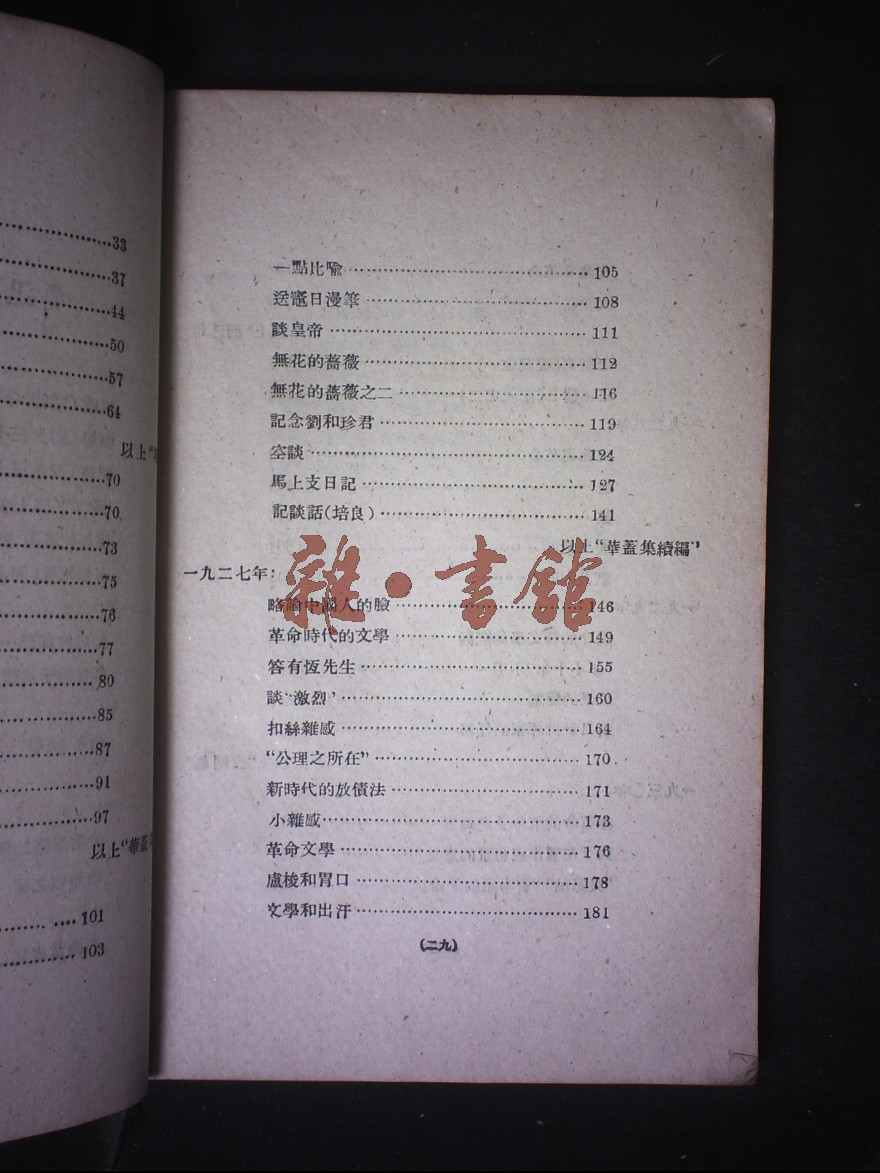 33
37
44
50
57
64
以上"
70
70
73
75
76
77
80
85
87
91
97
以上"華蓋
101
103
一點比喻 105
送竈日漫筆 108
談皇帝 111
無花的薔薇 112
無花的薔薇之二 116
記念劉和珍君 119
空談 124
馬上支日記 127
記談話(培良) 141
以上"華蓋集續編"
一九二七年:
略論中國人的臉 146
革命時代的文學 149
答有恆先生 155
談"激烈" 160
扣絲雜感 164
"公理之所在" 170
新時代的放債法 171
小雜感 173
革命文學 176
盧梭和胃口 178
文學和出汗 181
(二九)
雜·書館